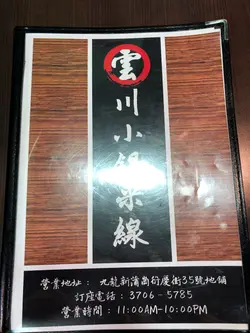 雲川小鍋米線
營業地址： 九龍新蒲崗衍慶街35號地舖
訂座電話：3706-5785
營業時間：11:00AM-10:00PM